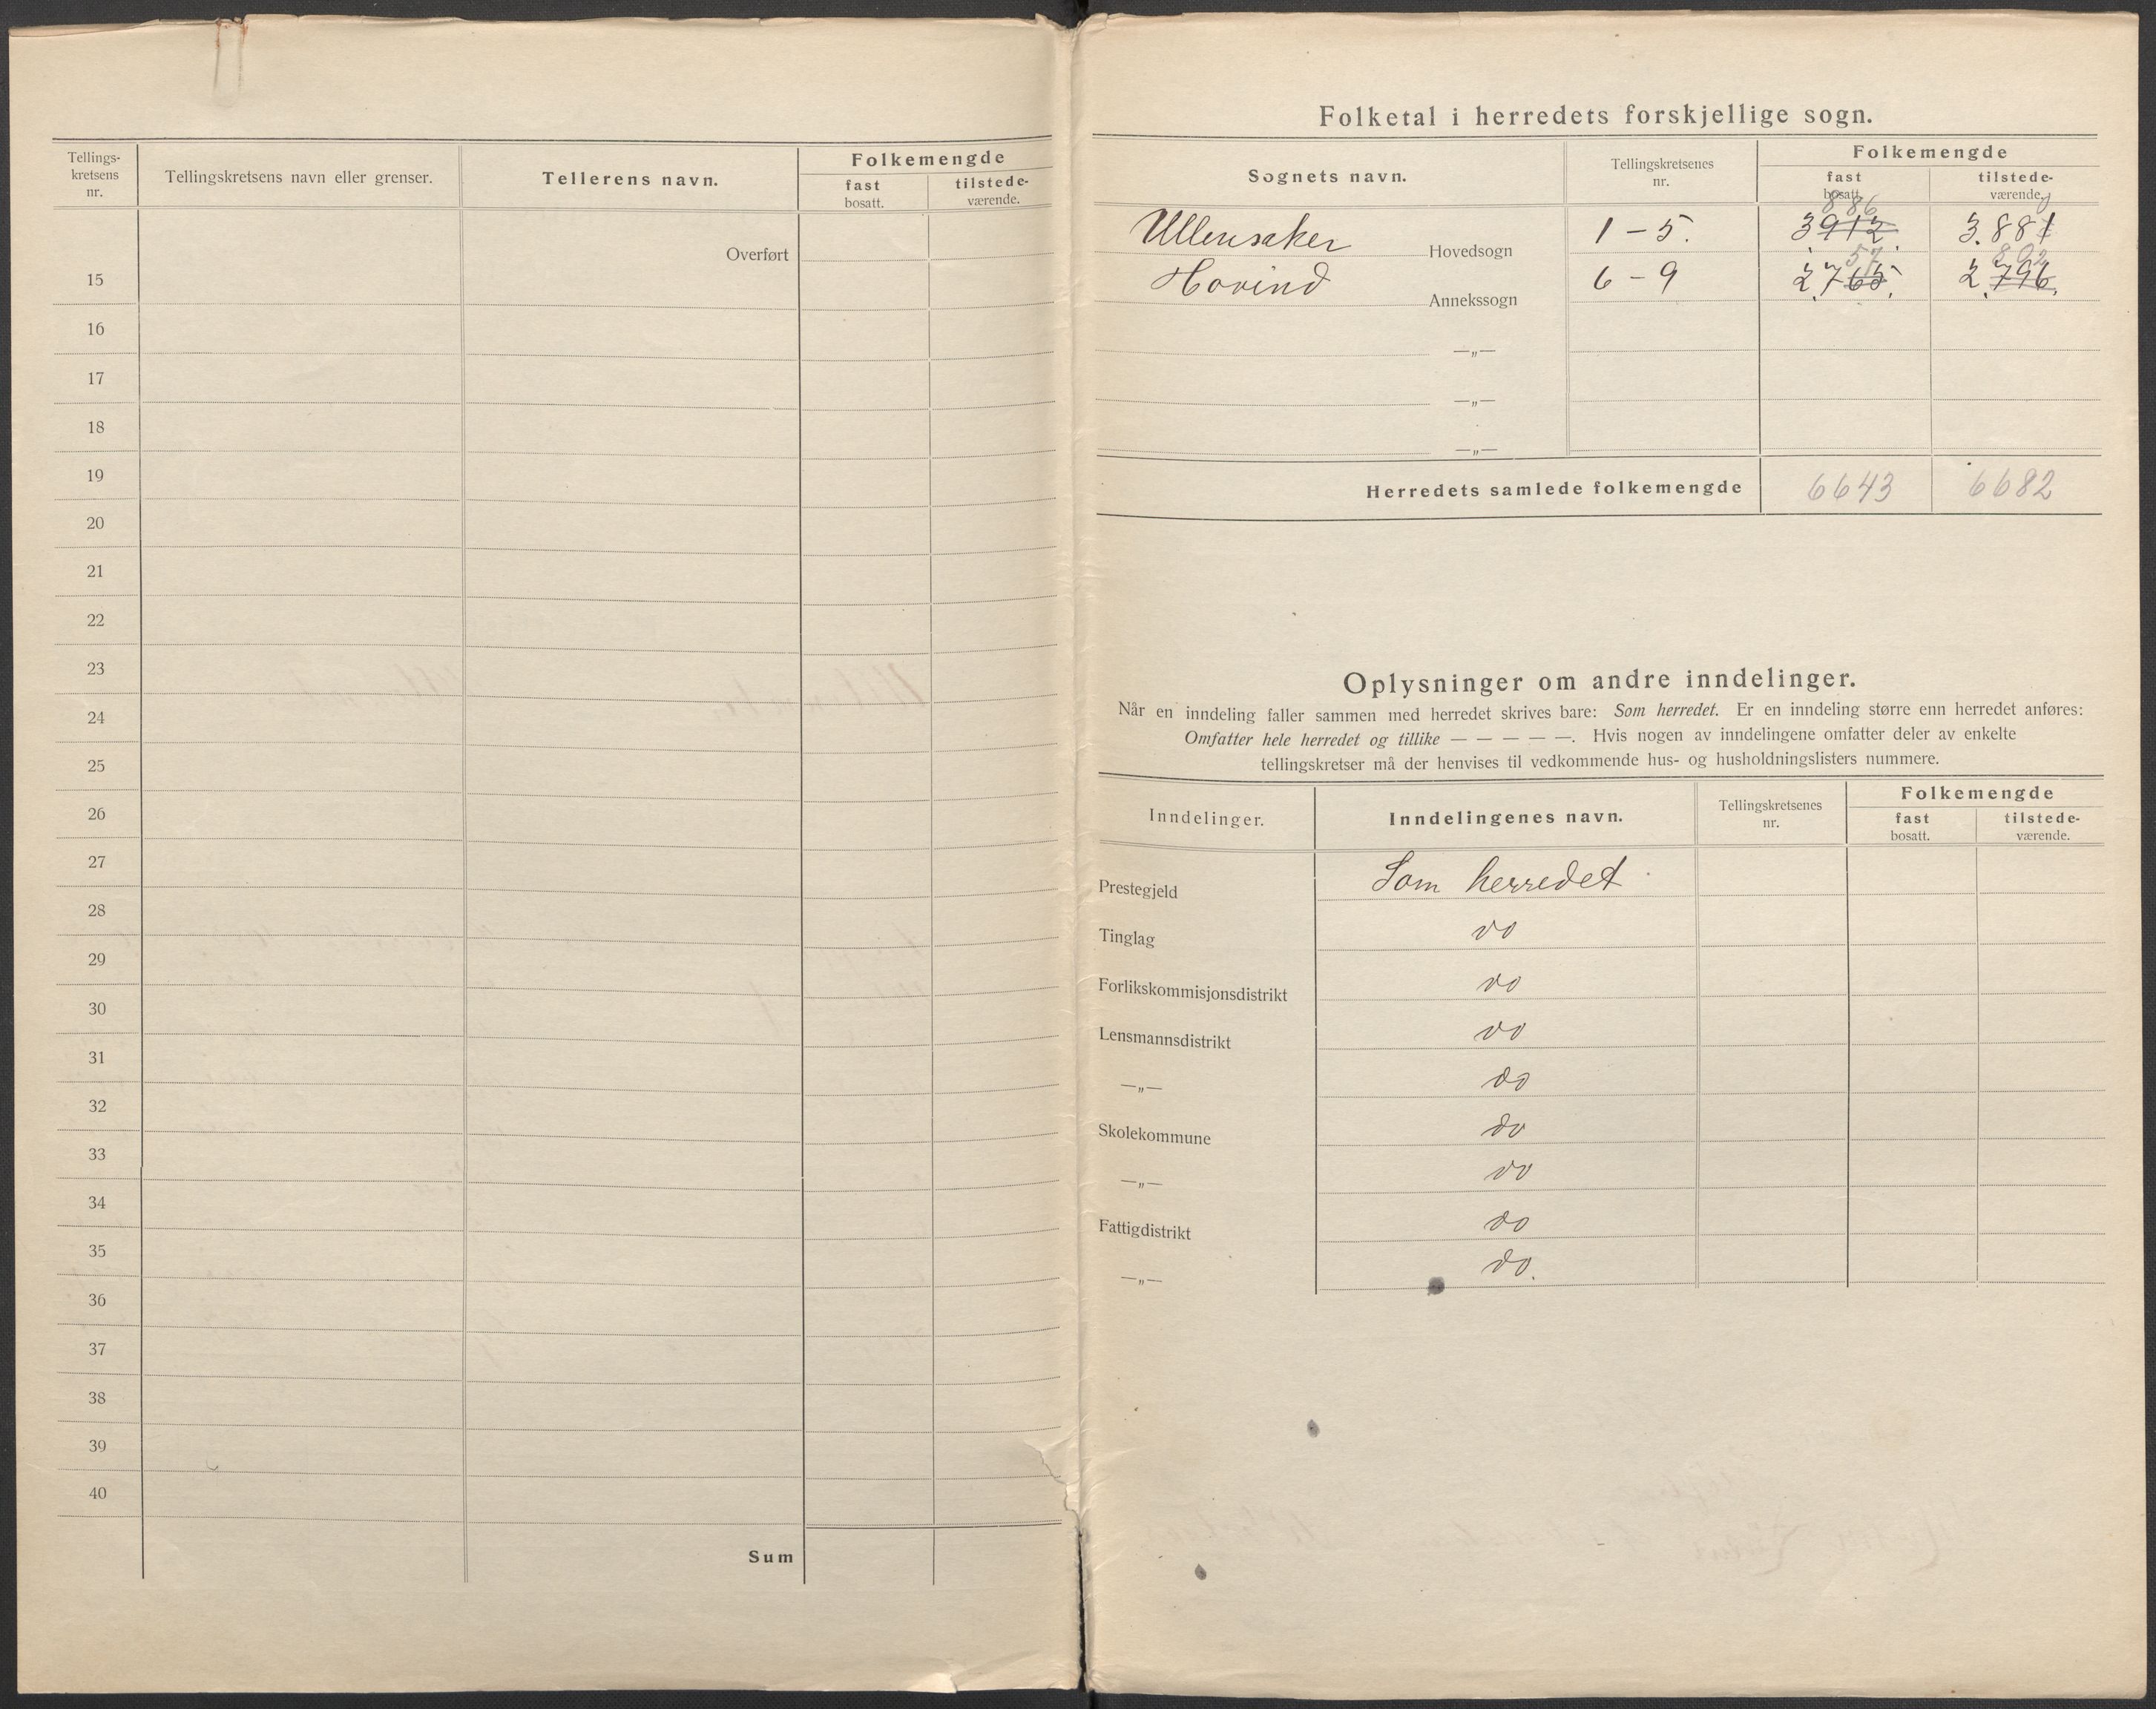 Tellings-
kretsens
nr.
Tellingskretsens navn eller grenser.
Tellerens navn.
Folkemengde
fast
bosatt.
tilstede-
værende.
Overført
15
16
17
18
19
20
21
22
23
24
25
26
27
28
29
30
31
32
33
34
35
36
37
38
39
40
Sum
Folketal i herredets forskjellige sogn.
Sognets navn.
Tellingskretsenes
nr.
Folkemengde
fast
bosatt.
tilstede-
værende.
886
Ullensaker Hovedsogn 1 - 5. 3912. 3.881
57 802
Hovind Annekssogn 6 - 9 2.765. 2.796.
—„—
—„—
—„—
Herredets samlede folkemengde 6643 6682
Oplysninger om andre inndelinger.
Når en inndeling faller sammen med herredet skrives bare: Som herredet. Er en inndeling større enn herredet anføres:
Omfatter hele herredet og tillike — — — — —. Hvis nogen av inndelingene omfatter deler av enkelte
tellingskretser må der henvises til vedkommende hus- og husholdningslisters nummere.
Inndelinger.
Inndelingenes navn.
Tellingskretsenes
nr.
Folkemengde
fast
bosatt.
tilstede-
værende.
Prestegjeld Som herredet
Tinglag do
Forlikskommisjonsdistrikt do
Lensmannsdistrikt do
—„— do
Skolekommune do
—„— do
Fattigdistrikt do
—„— do.